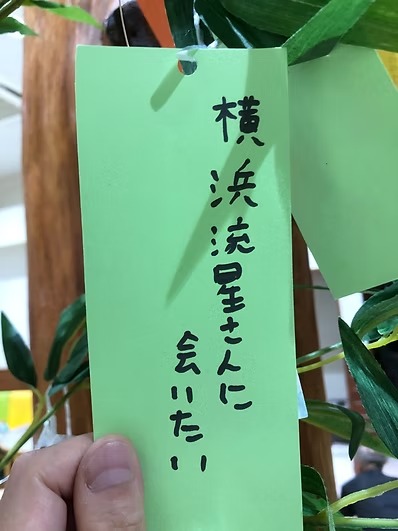 横浜流星さんに
会いたい